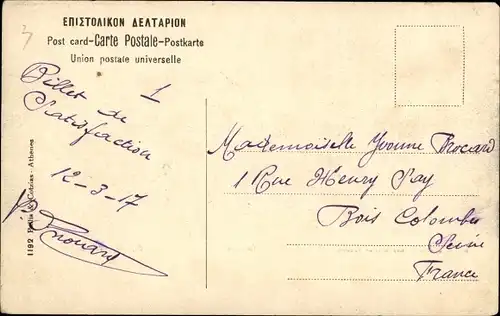 ΕΠΙΣΤΟΛΙΚΟΝ ΔΕΛΤΑΡΙΟΝ
Post card-Carte Postale-Postkarte
Union postale universelle
1
Billet de
Satisfaction
12-3-17
1192 Pallis & Cotzias - Athènes
Mademoiselle Yvonne Brocard
1 Rue Henry Say
Bois Colombe
Seine
France